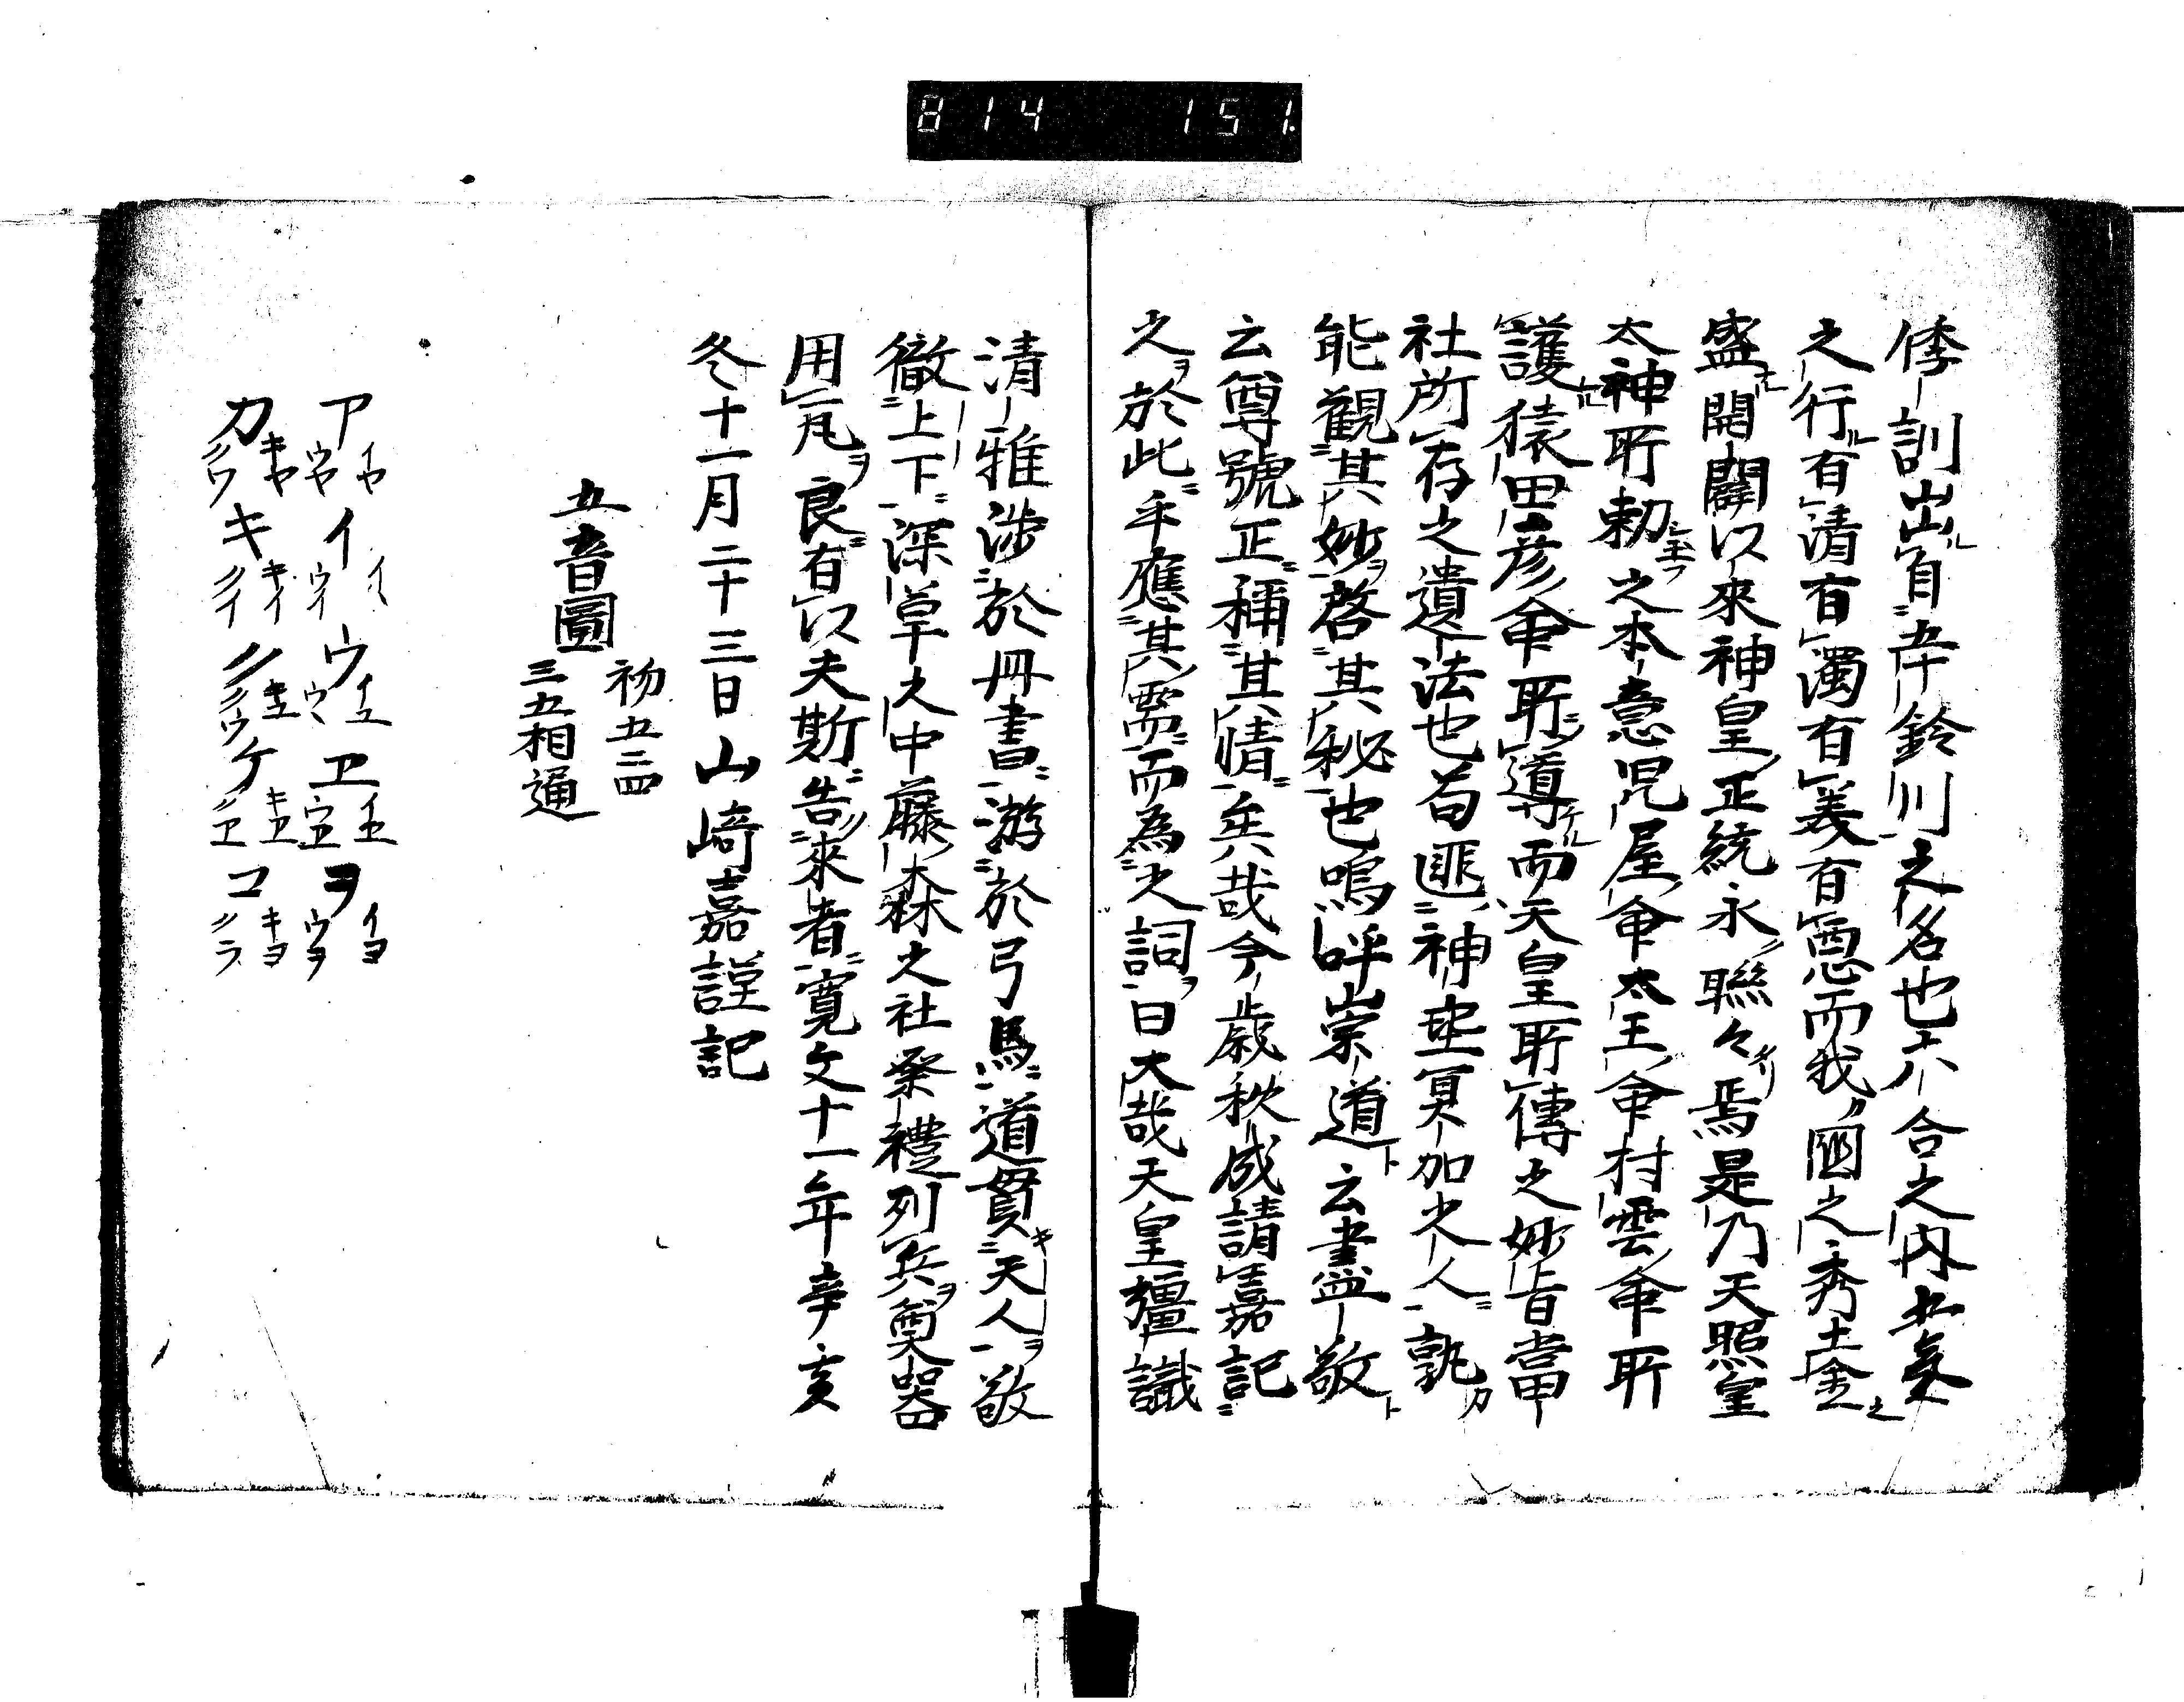 814 151
倭訓出自五十鈴川之名也六合之内五氣
之行有清有濁有美有惡而我國之秀土金之
盛開闢以來神皇正統永聯々焉是乃天照皇
太神所勅之本意児屋命太玉命村雲命所
護猿田彦命所導而天皇所傳之妙旨當
社所存之遺法也苟匪神垂冥加之人孰
能觀其妙啓其秘也嗚呼崇道云盡敬
云尊號正稱其情矣哉今歳秋成請嘉記
之於此乎應其需而為之詞曰大哉天皇疆識
清雅渉於丹書游於弓馬道貫天人敬
徹上下深草之中藤森之社祭禮列兵奠器
用瓦良有以夫斯告來者寛文十一年辛亥
冬十一月二十三日山﨑嘉謹記
五音圖 初五二四
三五相通
アイウヱヲ
カキクケコ